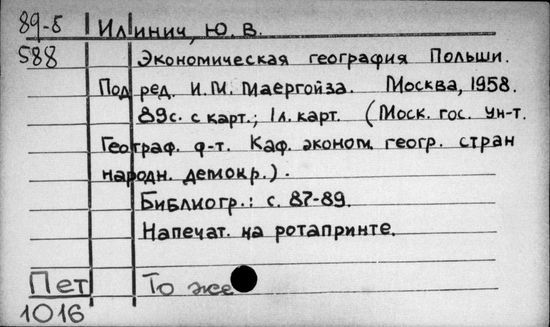 89-5 Илинич, Ю. В.
588 Экономическая география Польши.
Под ред. И.М. Маергойза. Москва, 1958.
89с. с карт.; 1л. карт. (Моск. гос. ун-т.
Географ. ф-т. Каф. эконом. геогр. стран
народн. демокр.).
Библиогр.: с. 87-89.
Напечат. на ротапринте.
Пет То же
1016